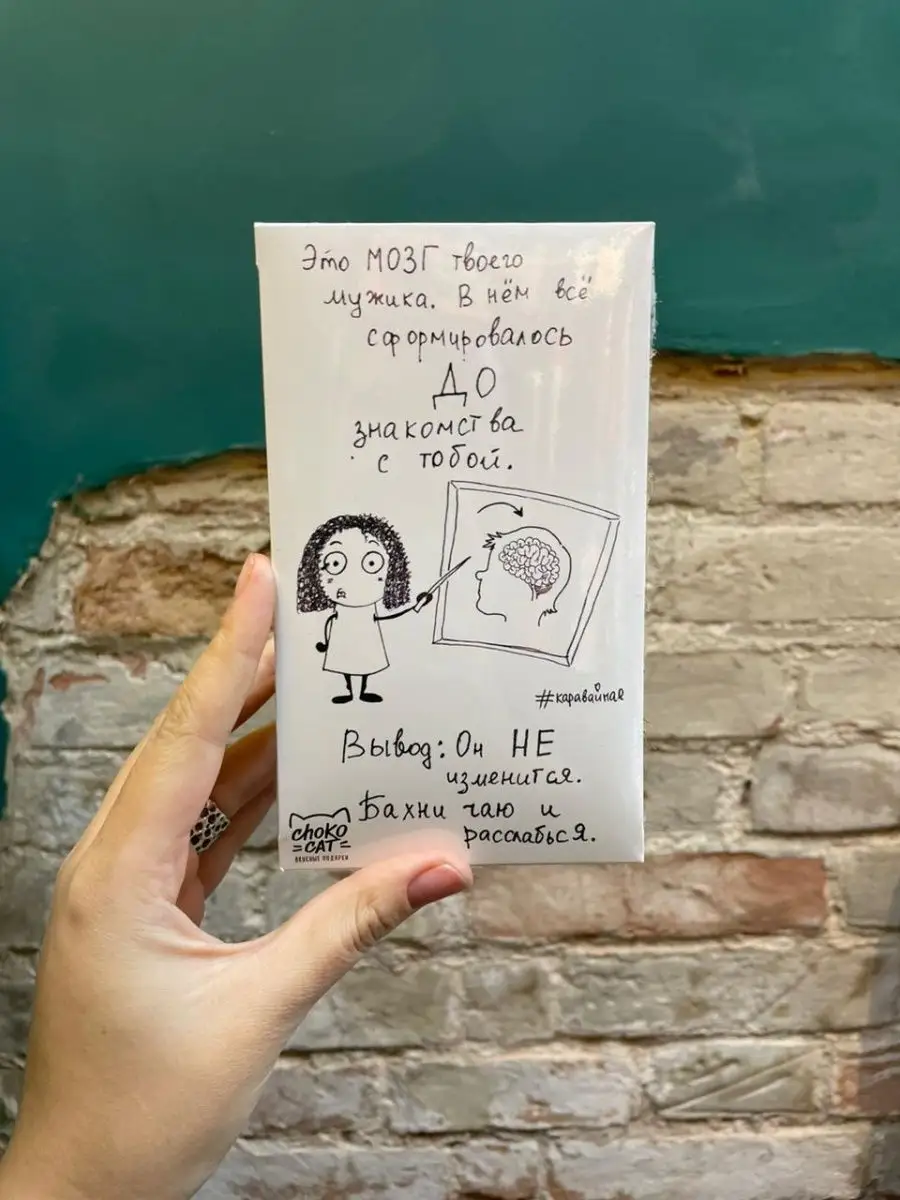 Это МОЗГ твоего
мужика. В нём всё
сформировалось
ДО
знакомства
с тобой.
#каравайная
Вывод: Он НЕ
изменится.
Бахни чаю и
расслабься.
CHOKO
CAT
ВКУСНЫЕ ПОДАРКИ